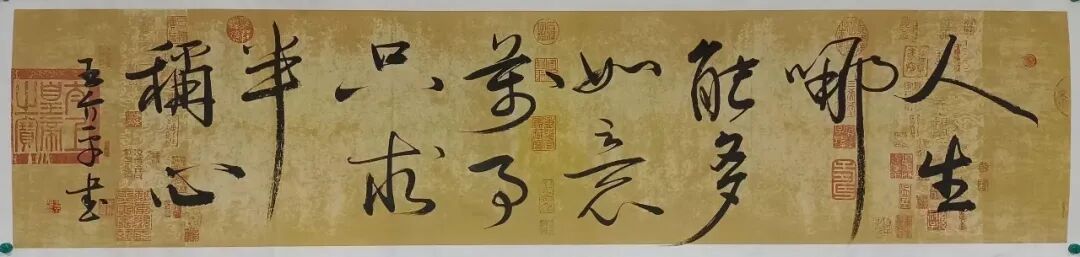 人生
哪
能多
如意
萬事
只求
半
稱心
王平书